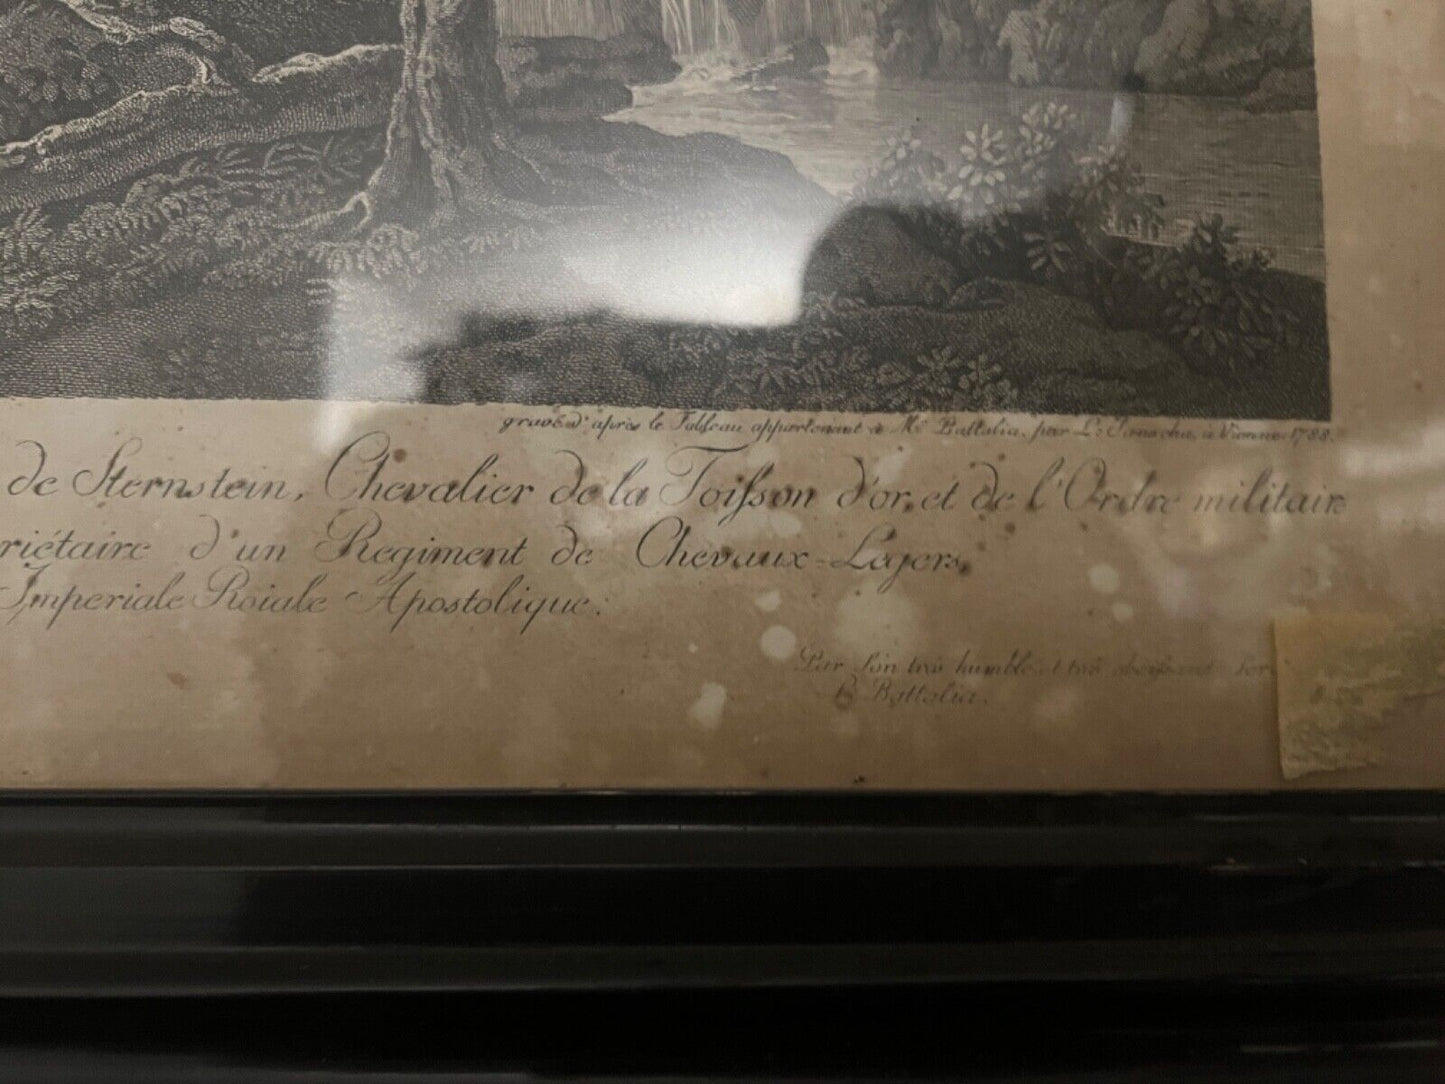 gravé d'après le Tableau appartenant à Mr. Battalia, par L: à Vienne. 1788.
de Sternstein, Chevalier de la Toisson d'or, et de l'Ordre militaire
riétaire d'un Regiment de Chevaux-Legers,
Imperiale Roiale Apostolique.
Par son très humble et très
Battalia.